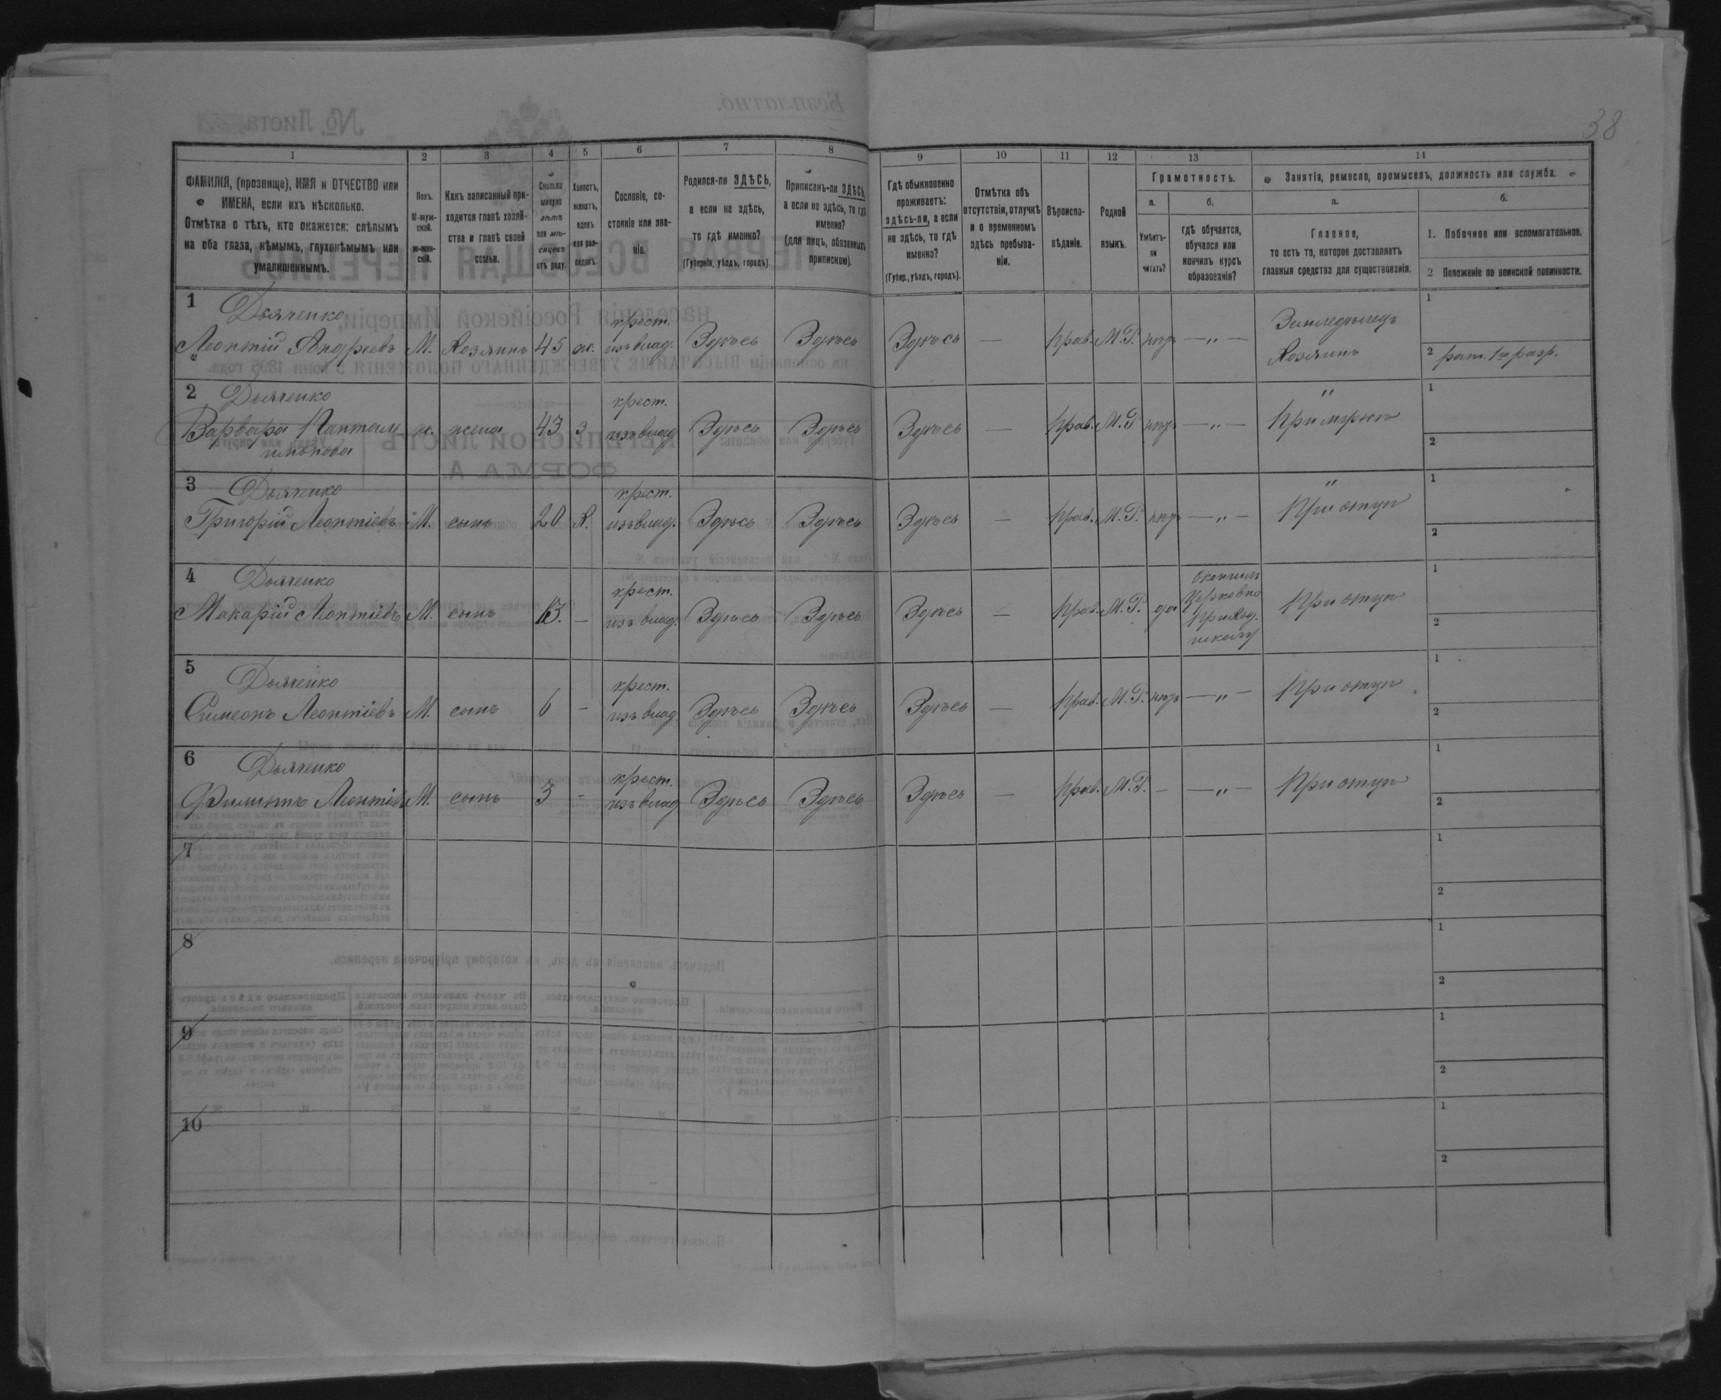 38
1 2 3 4 5 6 7 8 9 10 11 12 13 14
ФАМИЛІЯ, (прозвище), ИМЯ и ОТЧЕСТВО или
ИМЕНА, если ихъ нѣсколько.
Отмѣтка о тѣхъ, кто окажется: слѣпымъ
на оба глаза, нѣмымъ, глухонѣмымъ или
умалишеннымъ.
Полъ.
М-муж-
ской.
ж-жен-
скій.
Какъ записанный при-
ходится главѣ хозяй-
ства и главѣ своей
семьи.
Сколько
минуло
лѣтъ
или мѣ-
сяцевъ
отъ роду.
Холостъ,
женатъ,
вдовъ
или раз-
веденъ.
Сословіе, со-
стояніе или зва-
ніе.
Родился-ли ЗДѢСЬ,
а если не здѣсь,
то гдѣ именно?
(Губернія, уѣздъ, городъ)
Приписанъ-ли ЗДѢСЬ,
а если не здѣсь, то гдѣ
именно?
(для лицъ, обязанныхъ
припискою).
Гдѣ обыкновенно
проживаетъ:
здѣсь-ли, а если
не здѣсь, то гдѣ
именно?
(Губер., уѣздъ, городъ).
Отмѣтка объ
отсутствіи, отлучкѣ
и о временномъ
здѣсь пребыва-
ніи.
Вѣроиспо-
вѣданіе.
Родной
языкъ.
Грамотность.
а.
Умѣетъ-
ли
читать?
б.
гдѣ обучается,
обучался или
кончилъ курсъ
образованія?
Занятія, ремесло, промыселъ, должность или служба.
а.
Главное,
то есть то, которое доставляетъ
главныя средства для существованія.
б.
1. Побочное или вспомогательное.
2 Положеніе по воинской повинности.
1 Дьяченко крест. Земледѣлецъ 1
Леонтій Андреевъ М. Хозяинъ 45 ж. изъ влад. Здѣсь Здѣсь Здѣсь — прав. М.Р. нѣтъ —„— Хозяинъ 2 рат. 1го разр.
2 Дьяченко крест. „ 1
Варвара Пантели ж. жена 43 з изъ влад. Здѣсь Здѣсь Здѣсь — прав. М.Р. нѣтъ —„— При мужѣ
имонова 2
3 Дьяченко крест. „ 1
Григорій Леонтіевъ М. сынъ 20 х. изъ влад. Здѣсь Здѣсь Здѣсь — прав. М.Р. нѣтъ —„— При отцѣ 2
4 Дьяченко крест. окончилъ 1
Макарій Леонтіевъ М. сынъ 13. — изъ влад. Здѣсь Здѣсь Здѣсь — прав. М.Р. да Церковно При отцѣ
приход. 2
школу
5 Дьяченко крест. 1
Симеонъ Леонтіевъ М. сынъ 6 — изъ влад. Здѣсь Здѣсь Здѣсь — прав. М.Р. нѣтъ —„— При отцѣ 2
6 Дьяченко крест. 1
Филиппъ Леонтіев М. сынъ 3 — изъ влад Здѣсь Здѣсь Здѣсь — прав. М.Р. — —„— При отцѣ 2
7 1
2
8 1
2
9 1
2
10 1
2